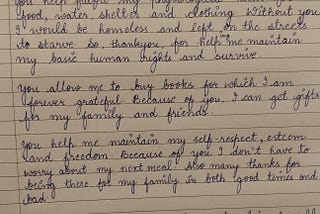 You help fulfil my
food, water, shelter and clothing. Without you
I would be homeless and left on the streets
to starve. So, thankyou, for help me maintain
my basic human rights and survive.
You allow me to buy books for which I am
forever grateful. Because of you, I can get gifts
for my family and friends.
You help me maintain my self-respect, esteem
and freedom. Because of you I don't have to
worry about my next meal. Also many thanks for
being there for my family in both good times and
bad.